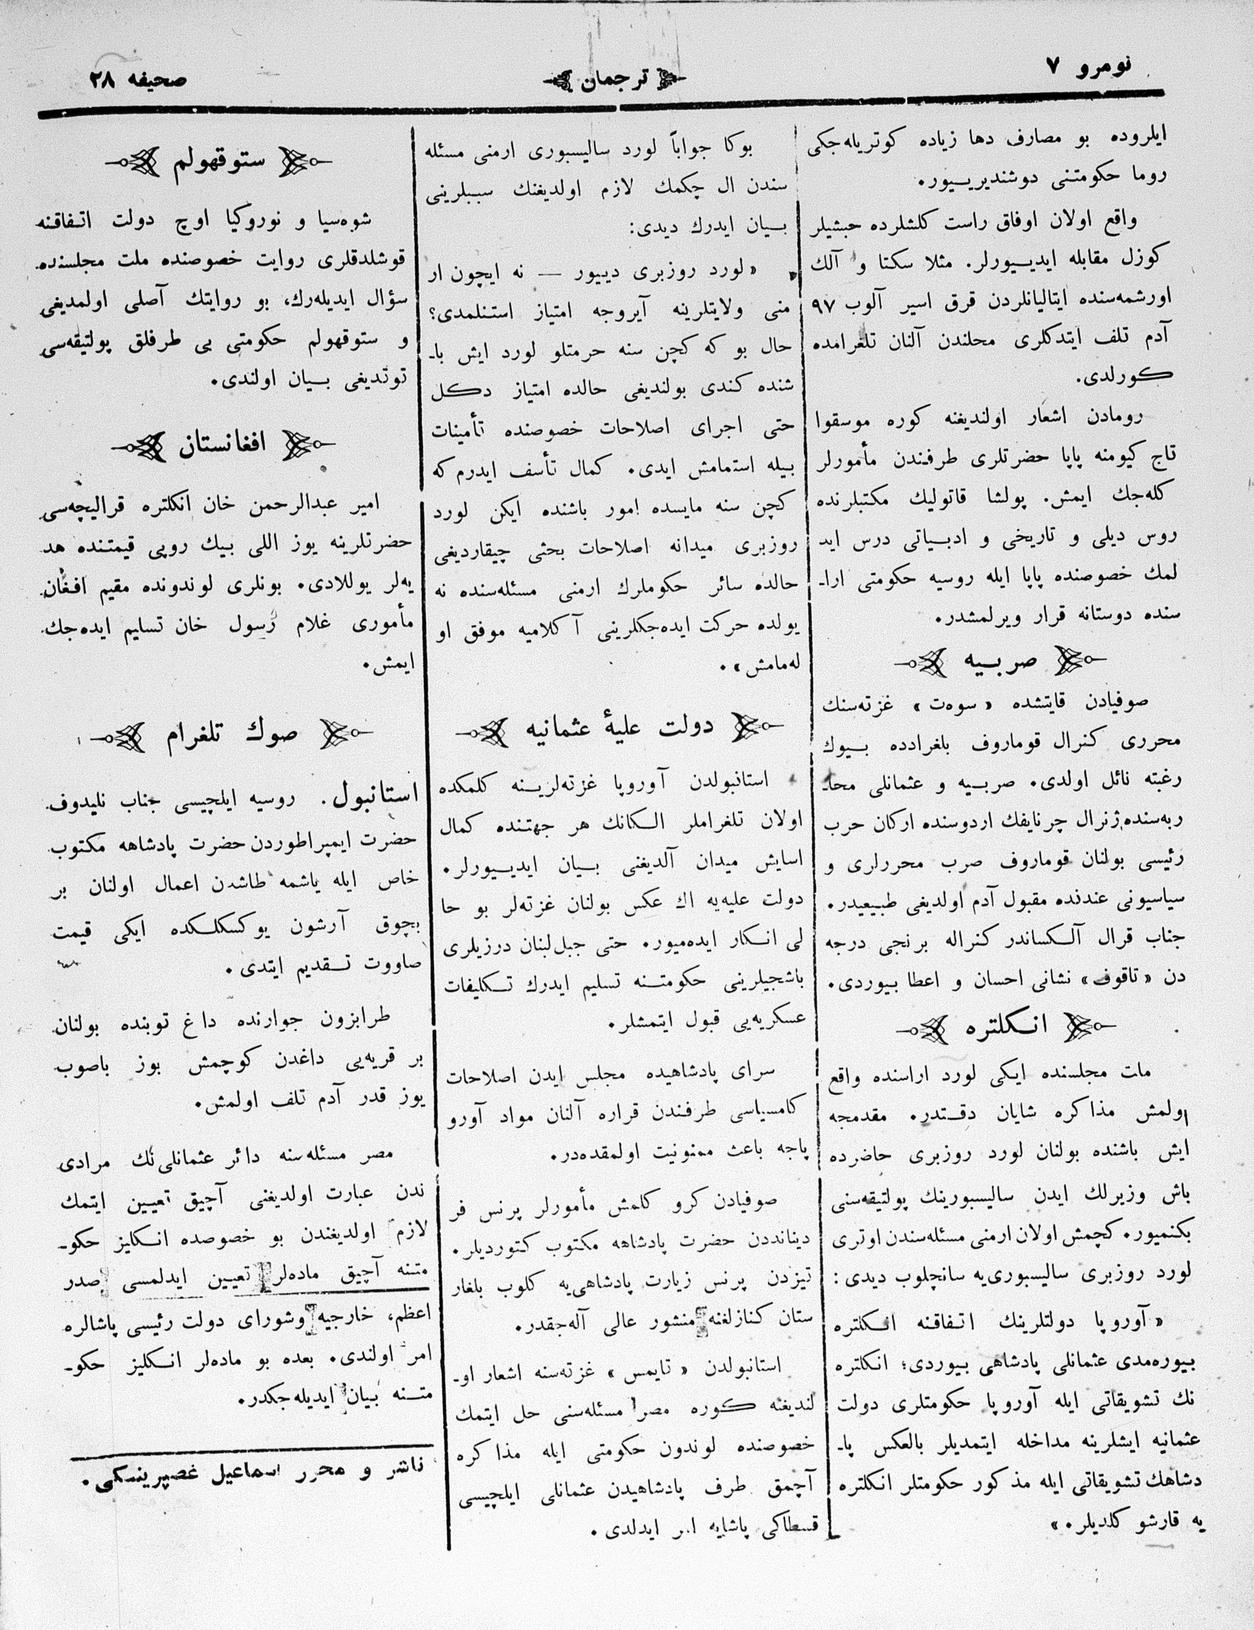 نومرو ۷
ترجمان
صحيفه ۲۸
ايلروده بو مصارف دها زياده كوتريله‌جكى
روما حكومتنى دوشنديريسيور.
واقع اولان اوفاق راست كلشلرده حبشيلر
كوزل مقابله ايديسيورلر. مثلا سكتا و آلك
اورشمه‌سنده ايتاليانلردن قرق اسير آلوب ۹۷
آدم تلف ايتدكلرى محلندن آلنان تلغرامده
كورلدى.
رومادن اشعار اولنديغنه كوره موسقوا
تاج كيومنه پاپا حضرتلرى طرفندن مأمورلر
كله‌جك ايمش. پولشا قاتوليك مكتبلرنده
روس ديلى و تاريخى و ادبياتى درس ايد
لمك خصوصنده پاپا ايله روسيه حكومتى ارا-
سنده دوستانه قرار ويرلمشدر.
صربيه
صوفيادن قايتشده «سوه‌ت» غزته‌سنك
محررى كنرال قوماروف بلغرادده بيوك
رغبته نائل اولدى. صربيه و عثمانلى محا-
ربه‌سنده ژنرال چرنايفك اردوسنده اركان حرب
رئيسى بولنان قوماروف صرب محررلرى و
سياسيونى عندنده مقبول آدم اولديغى طبيعيدر.
جناب قرال آلكساندر كنراله برنجى درجه
دن «تاقوف» نشانى احسان و اعطا بيوردى.
انكلتره
مات مجلسنده ايكى لورد اراسنده واقع
اولمش مذاكره شايان دقتدر. مقدمجه
ايش باشنده بولنان لورد روزبرى حاضرده
باش وزيرلك ايدن ساليسبورينك پولتيقه‌سنى
بكنميور. كچمش اولان ارمنى مسئله‌سندن اوترى
لورد روزبرى ساليسبورى‌يه سانچلوب ديدى:
«آوروپا دولتلرينك اتفاقنه انكلتره
بيوره‌مدى عثمانلى پادشاهى بيوردى؛ انكلتره
نك تشويقاتى ايله آوروپا حكومتلرى دولت
عثمانيه ايشلرينه مداخله ايتمديلر بالعكس پا-
دشاهك تشويقاتى ايله مذكور حكومتلر انكلتره
يه قارشو كلديلر.»
بوكا جواباً لورد ساليسبورى ارمنى مسئله
سندن ال چكمك لازم اولديغنك سببلرينى
بيان ايدرك ديدى:
«لورد روزبرى دييور — نه ايچون ار
منى ولايتلرينه آيروجه امتياز استنلمدى؟
حال بو كه كچن سنه حرمتلو لورد ايش با-
شنده كندى بولنديغى حالده امتياز دكل
حتى اجراى اصلاحات خصوصنده تأمينات
بيله استمامش ايدى. كمال تأسف ايدرم كه
كچن سنه مايسده امور باشنده ايكن لورد
روزبرى ميدانه اصلاحات بحثى چيقارديغى
حالده سائر حكوملرك ارمنى مسئله‌سنده نه
يولده حركت ايده‌جكلرينى آكلاميه موفق او
له‌مامش».
دولت عليهٔ عثمانيه
استانبولدن آوروپا غزته‌لرينه كلمكده
اولان تلغراملر الكانك هر جهتنده كمال
اسايش ميدان آلديغنى بيان ايديسيورلر.
دولت عليه‌يه اك عكس بولنان غزته‌لر بو حا
لى انكار ايده‌ميور. حتى جبل‌لبنان درزيلرى
باشجيلرينى حكومتنه تسليم ايدرك تكليفات
عسكريه‌يى قبول ايتمشلر.
سراى پادشاهيده مجلس ايدن اصلاحات
كامسياسى طرفندن قراره آلنان مواد آورو
پاجه باعث ممنونيت اولمقده‌در.
صوفيادن كرو كلمش مأمورلر پرنس فر
دينانددن حضرت پادشاهه مكتوب كتورديلر.
تيزدن پرنس زيارت پادشاهى‌يه كلوب بلغار
ستان كنازلغنه منشور عالى آله‌جقدر.
استانبولدن «تايمس» غزته‌سنه اشعار او-
لنديغنه كوره مصر مسئله‌سنى حل ايتمك
خصوصنده لوندون حكومتى ايله مذاكره
آچمق طرف پادشاهيدن عثمانلى ايلچيسى
قسطاكى پاشايه امر ايدلدى.
ستوقهولم
شوه‌سيا و نوروكيا اوچ دولت اتفاقنه
قوشلدقلرى روايت خصوصنده ملت مجلسنده
سؤال ايديله‌رك، بو روايتك آصلى اولمديغى
و ستوقهولم حكومتى بى طرفلق پولتيقه‌سى
توتديغى بيان اولندى.
افغانستان
امير عبدالرحمن خان انكلتره قراليچه‌سى
حضرتلرينه يوز اللى بيك روپى قيمتنده هد
يه‌لر يوللادى. بونلرى لوندونده مقيم افغان
مأمورى غلام رسول خان تسليم ايده‌جك
ايمش.
صوك تلغرام
استانبول. روسيه ايلچيسى جناب نليدوف
حضرت ايمپراطوردن حضرت پادشاهه مكتوب
خاص ايله ياشمه طاشدن اعمال اولنان بر
بچوق آرشون يوكسكلكده ايكى قيمت
صاووت تقديم ايتدى.
طرابزون جوارنده داغ توبنده بولنان
بر قريه‌يى داغدن كوچمش بوز باصوب
يوز قدر آدم تلف اولمش.
مصر مسئله‌سنه دائر عثمانلى‌نك مرادى
ندن عبارت اولديغنى آچيق تعيين ايتمك
لازم اولديغندن بو خصوصده انكليز حكو-
متنه آچيق ماده‌لر تعيين ايدلمسى صدر
اعظم، خارجيه وشوراى دولت رئيسى پاشالره
امر اولندى. بعده بو ماده‌لر انكليز حكو-
متنه بيان ايديله‌جكدر.
ناشر و محرر اسماعيل غصپرينسكى.